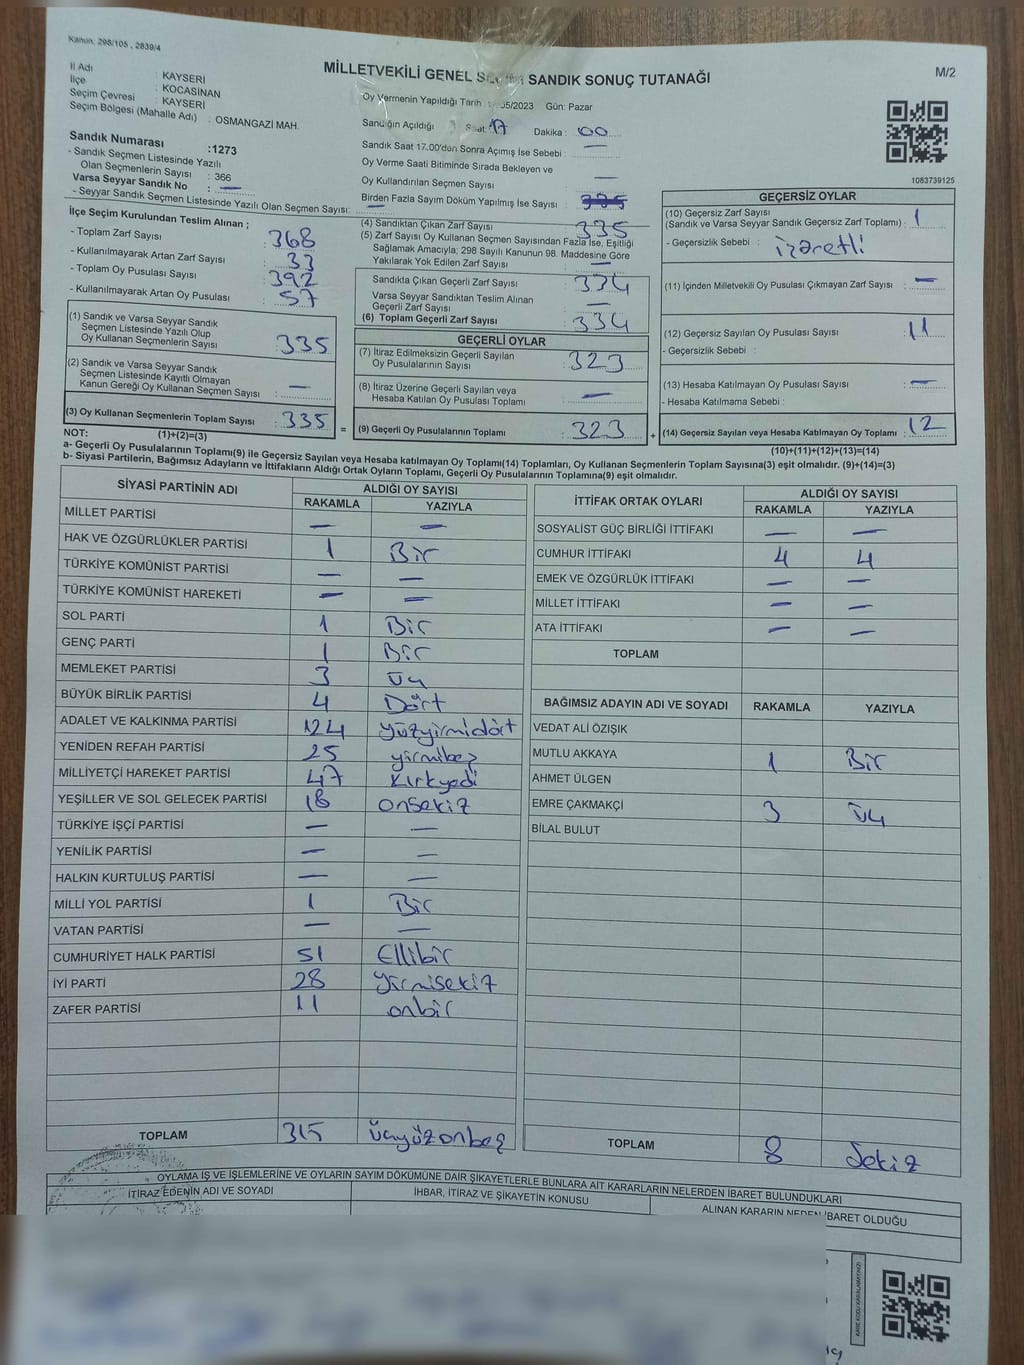 Kanun: 298/105 , 2839/4
MİLLETVEKİLİ GENEL SEÇİMİ SANDIK SONUÇ TUTANAĞI
M/2
İl Adı : KAYSERİ
İlçe : KOCASİNAN
Seçim Çevresi : KAYSERİ
Seçim Bölgesi (Mahalle Adı) : OSMANGAZİ MAH.
Oy Vermenin Yapıldığı Tarih : /05/2023 Gün: Pazar
Sandığın Açıldığı Saat: 17 Dakika : 00
Sandık Saat 17.00'den Sonra Açımış İse Sebebi : —
Oy Verme Saati Bitiminde Sırada Bekleyen ve
Oy Kullandırılan Seçmen Sayısı : —
Birden Fazla Sayım Döküm Yapılmış İse Sayısı :
Sandık Numarası :1273
- Sandık Seçmen Listesinde Yazılı
Olan Seçmenlerin Sayısı : 366
Varsa Seyyar Sandık No : —
- Seyyar Sandık Seçmen Listesinde Yazılı Olan Seçmen Sayısı: —
1083739125
İlçe Seçim Kurulundan Teslim Alınan ;
- Toplam Zarf Sayısı : 368
- Kullanılmayarak Artan Zarf Sayısı : 33
- Toplam Oy Pusulası Sayısı : 392
- Kullanılmayarak Artan Oy Pusulası : 57
(1) Sandık ve Varsa Seyyar Sandık
Seçmen Listesinde Yazılı Olup
Oy Kullanan Seçmenlerin Sayısı : 335
(2) Sandık ve Varsa Seyyar Sandık
Seçmen Listesinde Kayıtlı Olmayan
Kanun Gereği Oy Kullanan Seçmen Sayısı : —
(3) Oy Kullanan Seçmenlerin Toplam Sayısı : 335
(1)+(2)=(3)
(4) Sandıktan Çıkan Zarf Sayısı : 335
(5) Zarf Sayısı Oy Kullanan Seçmen Sayısından Fazla İse, Eşitliği
Sağlamak Amacıyla; 298 Sayılı Kanunun 98. Maddesine Göre
Yakılarak Yok Edilen Zarf Sayısı : —
Sandıkta Çıkan Geçerli Zarf Sayısı : 334
Varsa Seyyar Sandıktan Teslim Alınan
Geçerli Zarf Sayısı : —
(6) Toplam Geçerli Zarf Sayısı : 334
GEÇERLİ OYLAR
(7) İtiraz Edilmeksizin Geçerli Sayılan
Oy Pusulalarının Sayısı : 323
(8) İtiraz Üzerine Geçerli Sayılan veya
Hesaba Katılan Oy Pusulası Toplamı : —
= (9) Geçerli Oy Pusulalarının Toplamı : 323 +
GEÇERSİZ OYLAR
(10) Geçersiz Zarf Sayısı
(Sandık ve Varsa Seyyar Sandık Geçersiz Zarf Toplamı) : 1
- Geçersizlik Sebebi : izaretli
(11) İçinden Milletvekili Oy Pusulası Çıkmayan Zarf Sayısı : —
(12) Geçersiz Sayılan Oy Pusulası Sayısı : 11
- Geçersizlik Sebebi :
(13) Hesaba Katılmayan Oy Pusulası Sayısı : —
- Hesaba Katılmama Sebebi :
(14) Geçersiz Sayılan veya Hesaba Katılmayan Oy Toplamı : 12
(10)+(11)+(12)+(13)=(14)
NOT:
a- Geçerli Oy Pusulalarının Toplamı(9) ile Geçersiz Sayılan veya Hesaba katılmayan Oy Toplamı(14) Toplamları, Oy Kullanan Seçmenlerin Toplam Sayısına(3) eşit olmalıdır. (9)+(14)=(3)
b- Siyasi Partilerin, Bağımsız Adayların ve İttifakların Aldığı Ortak Oyların Toplamı, Geçerli Oy Pusulalarının Toplamına(9) eşit olmalıdır.
SİYASİ PARTİNİN ADI ALDIĞI OY SAYISI
RAKAMLA YAZIYLA
MİLLET PARTİSİ — —
HAK VE ÖZGÜRLÜKLER PARTİSİ 1 Bir
TÜRKİYE KOMÜNİST PARTİSİ — —
TÜRKİYE KOMÜNİST HAREKETİ — —
SOL PARTİ 1 Bir
GENÇ PARTİ 1 Bir
MEMLEKET PARTİSİ 3 Üç
BÜYÜK BİRLİK PARTİSİ 4 Dört
ADALET VE KALKINMA PARTİSİ 124 yüzyirmidört
YENİDEN REFAH PARTİSİ 25 yirmibeş
MİLLİYETÇİ HAREKET PARTİSİ 47 kırkyedi
YEŞİLLER VE SOL GELECEK PARTİSİ 18 onsekiz
TÜRKİYE İŞÇİ PARTİSİ — —
YENİLİK PARTİSİ — —
HALKIN KURTULUŞ PARTİSİ — —
MİLLİ YOL PARTİSİ 1 Bir
VATAN PARTİSİ — —
CUMHURİYET HALK PARTİSİ 51 Ellibir
İYİ PARTİ 28 yirmisekiz
ZAFER PARTİSİ 11 onbir
TOPLAM 315 üçyüzonbeş
İTTİFAK ORTAK OYLARI ALDIĞI OY SAYISI
RAKAMLA YAZIYLA
SOSYALİST GÜÇ BİRLİĞİ İTTİFAKI — —
CUMHUR İTTİFAKI 4 4
EMEK VE ÖZGÜRLÜK İTTİFAKI — —
MİLLET İTTİFAKI — —
ATA İTTİFAKI — —
TOPLAM
BAĞIMSIZ ADAYIN ADI VE SOYADI RAKAMLA YAZIYLA
VEDAT ALİ ÖZIŞIK
MUTLU AKKAYA 1 Bir
AHMET ÜLGEN
EMRE ÇAKMAKÇİ 3 Üç
BİLAL BULUT
TOPLAM 8 Sekiz
OYLAMA İŞ VE İŞLEMLERİNE VE OYLARIN SAYIM DÖKÜMÜNE DAİR ŞİKAYETLERLE BUNLARA AİT KARARLARIN NELERDEN İBARET BULUNDUKLARI
İTİRAZ EDENİN ADI VE SOYADI İHBAR, İTİRAZ VE ŞİKAYETİN KONUSU ALINAN KARARIN NEDEN İBARET OLDUĞU
KARE KODU KARALAMAYINIZ!